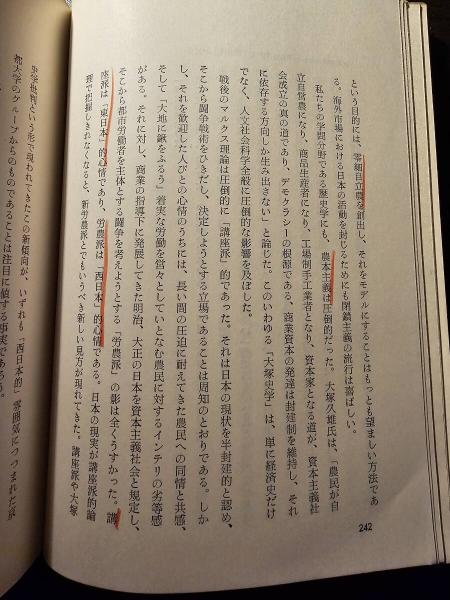 という目的には、零細自立農を創出し、それをモデルにすることはもっとも望ましい方法であ
る。海外市場における日本の活動を封じるためにも閉鎖主義の流行は喜ばしい。
私たちの学問分野である歴史学にも、農本主義は圧倒的だった。大塚久雄氏は、「農民が自
立自営農になり、商品生産者になり、工場制手工業者となり、資本家となる道が、資本主義社
会成立の真の道であり、デモクラシーの根源である、商業資本の発達は封建制を維持し、それ
に依存する方向しか生み出さない」と論じた。このいわゆる「大塚史学」は、単に経済史だけ
でなく、人文社会科学全般に圧倒的な影響を及ぼした。
戦後のマルクス理論は圧倒的に「講座派」的であった。それは日本の現状を半封建的と認め、
そこから闘争戦術をひきだし、決定しようとする立場であることは周知のとおりである。しか
し、それを歓迎した人びとの心情のうちには、長い間の圧迫に耐えてきた農民への同情と共感、
そして「大地に鍬をふるう」着実な労働を営々としていとなむ農民に対するインテリの劣等感
がある。それに対し、商業の指導下に発展してきた明治、大正の日本を資本主義社会と規定し、
そこから都市労働者を主体とする闘争を考えようとする「労農派」の影は全くうすかった。講
座派は「東日本」的心情であり、労農派は「西日本」的心情である。日本の現実が講座派的論
理で把握しきれなくなると、新労農派とでもいうべき新しい見方が現れてきた。講座派や大塚
史学批判という形で現われてきたこの新傾向が、いずれも「西日本的」雰囲気につつまれた京
都大学のグループからのものであることは注目に値する事実であろう。
242